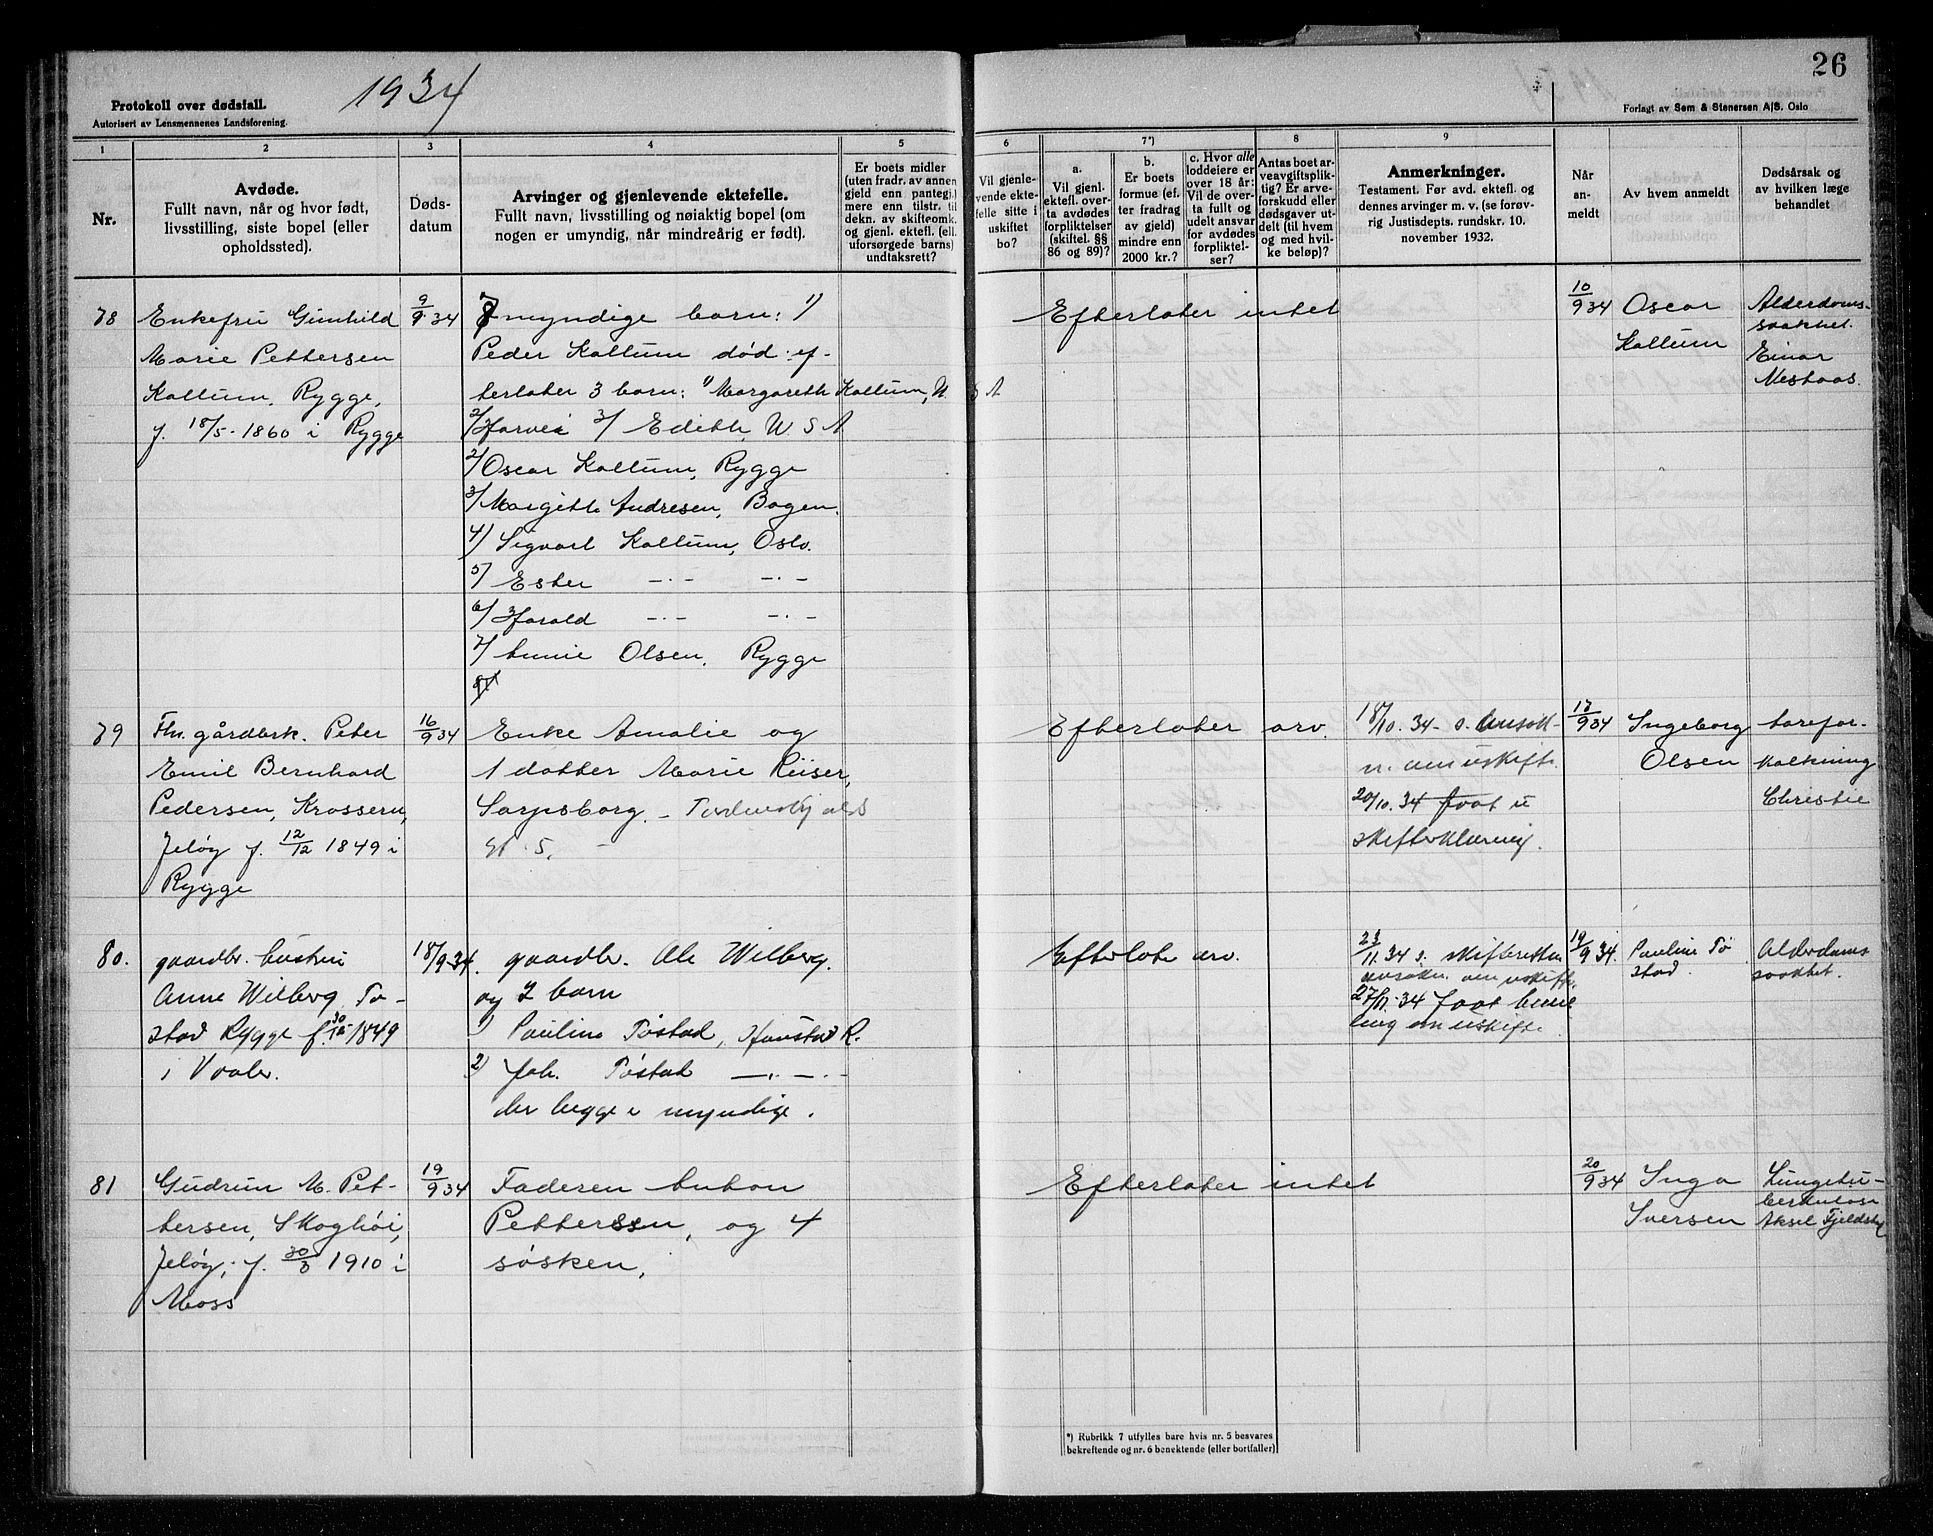 1934
26
Protokoll over dødsfall.
Autorisert av Lensmennenes Landsforening.
Forlagt av Sem & Stenersen A/S. Oslo
1
2
3
4
5
6
7*)
8
9
Nr.
Avdøde.
Fullt navn, når og hvor født,
livsstilling, siste bopel (eller
opholdssted).
Døds-
datum
Arvinger og gjenlevende ektefelle.
Fullt navn, livsstilling og nøiaktig bopel (om
nogen er umyndig, når mindreårig er født).
Er boets midler
(uten fradr. av annen
gjeld enn pantegj.)
mere enn tilstr. til
dekn. av skifteomk.
og gjenl. ektefl. (ell.
uforsørgede barns)
undtaksrett?
Vil gjenle-
vende ekte-
felle sitte i
uskiftet
bo?
a.
Vil gjenl.
ektefl. over-
ta avdødes
forpliktelser
(skiftel. §§
86 og 89)?
b.
Er boets
formue (ef-
ter fradrag
av gjeld)
mindre enn
2000 kr.?
c. Hvor alle
loddeiere er
over 18 år:
Vil de over-
ta fullt og
udelt ansvar
for avdødes
forpliktel-
ser?
Antas boet ar-
veavgiftsplik-
tig? Er arve-
forskudd eller
dødsgaver ut-
delt (til hvem
og med hvil-
ke beløp)?
Anmerkninger.
Testament. Før avd. ektefl. og
dennes arvinger m. v. (se forøv-
rig Justisdepts. rundskr. 10.
november 1932.
Når
an-
meldt
Av hvem anmeldt
Dødsårsak og
av hvilken læge
behandlet
78
Enkefru Gunhild
Marie Pettersen
Kallum, Rygge,
f. 18/5-1860 i Rygge
9/9 34
7 myndige barn: 1)
Peder Kallum død: ef-
terlater 3 barn: 1) Margareth Kallum, U S A
2/ Harvei 3/ Edith, U S A
2/ Oscar Kallum, Rygge
3/ Margith Andresen, Bogen.
4) Sigvart Kallum, Oslo.
5) Ester -.- -.-
6/ Harald -.- -.-
7/ Annie Olsen, Rygge
Efterlater intet
10/9 34
Oscar
Kallum
Alderdoms-
svakhet.
Einar
Mestaas.
79
Fhv. gårdbrk. Peter
Emil Bernhard
Pedersen, Krossern,
Jeløy f. 12/12 1849 i
Rygge
16/9 34
Enke Amalie og
1 datter Marie Riiser,
Sarpsborg. - Tordenskjolds
gt. 5.
Efterlater arv.
18/10. 34 - s.
om uskifte.
20/10. 34 faat u
skifteklæring.
17/9 34
Ingeborg
Olsen
Aarefor-
kalkning
Christie
80.
gaardbr. hustru
Anne Wilberg To-
stad Rygge f. 30/12 1849
i Vaaler.
18/9-34.
gaardbr. Ole Wilberg.
og 2 barn
1) Pauline Tostad, Hanstad R.
2) Joh. Tostad -.-.-
der begge e myndige.
Efterlate arv.
23/11. 34 s. skifteretten
om uskifte.
27/11-34 faat bevil
ling om uskifte.
19/9 34.
Pauline To
stad.
Alderdoms
svakhet.
81
Gudrun M. Pet-
tersen, Skoghöi,
Jeløy, f. 30/3 1910 i
Moss
19/9 34
Faderen Anton
Pettersen, og 4
søsken,
Efterlater intet
20/9 34
Inga
Iversen
Lungetu-
berkulose
Aksel Fjeldstad
*) Rubrikk 7 utfylles bare hvis nr. 5 besvares
bekreftende og nr. 6 benektende (eller bortfaller)